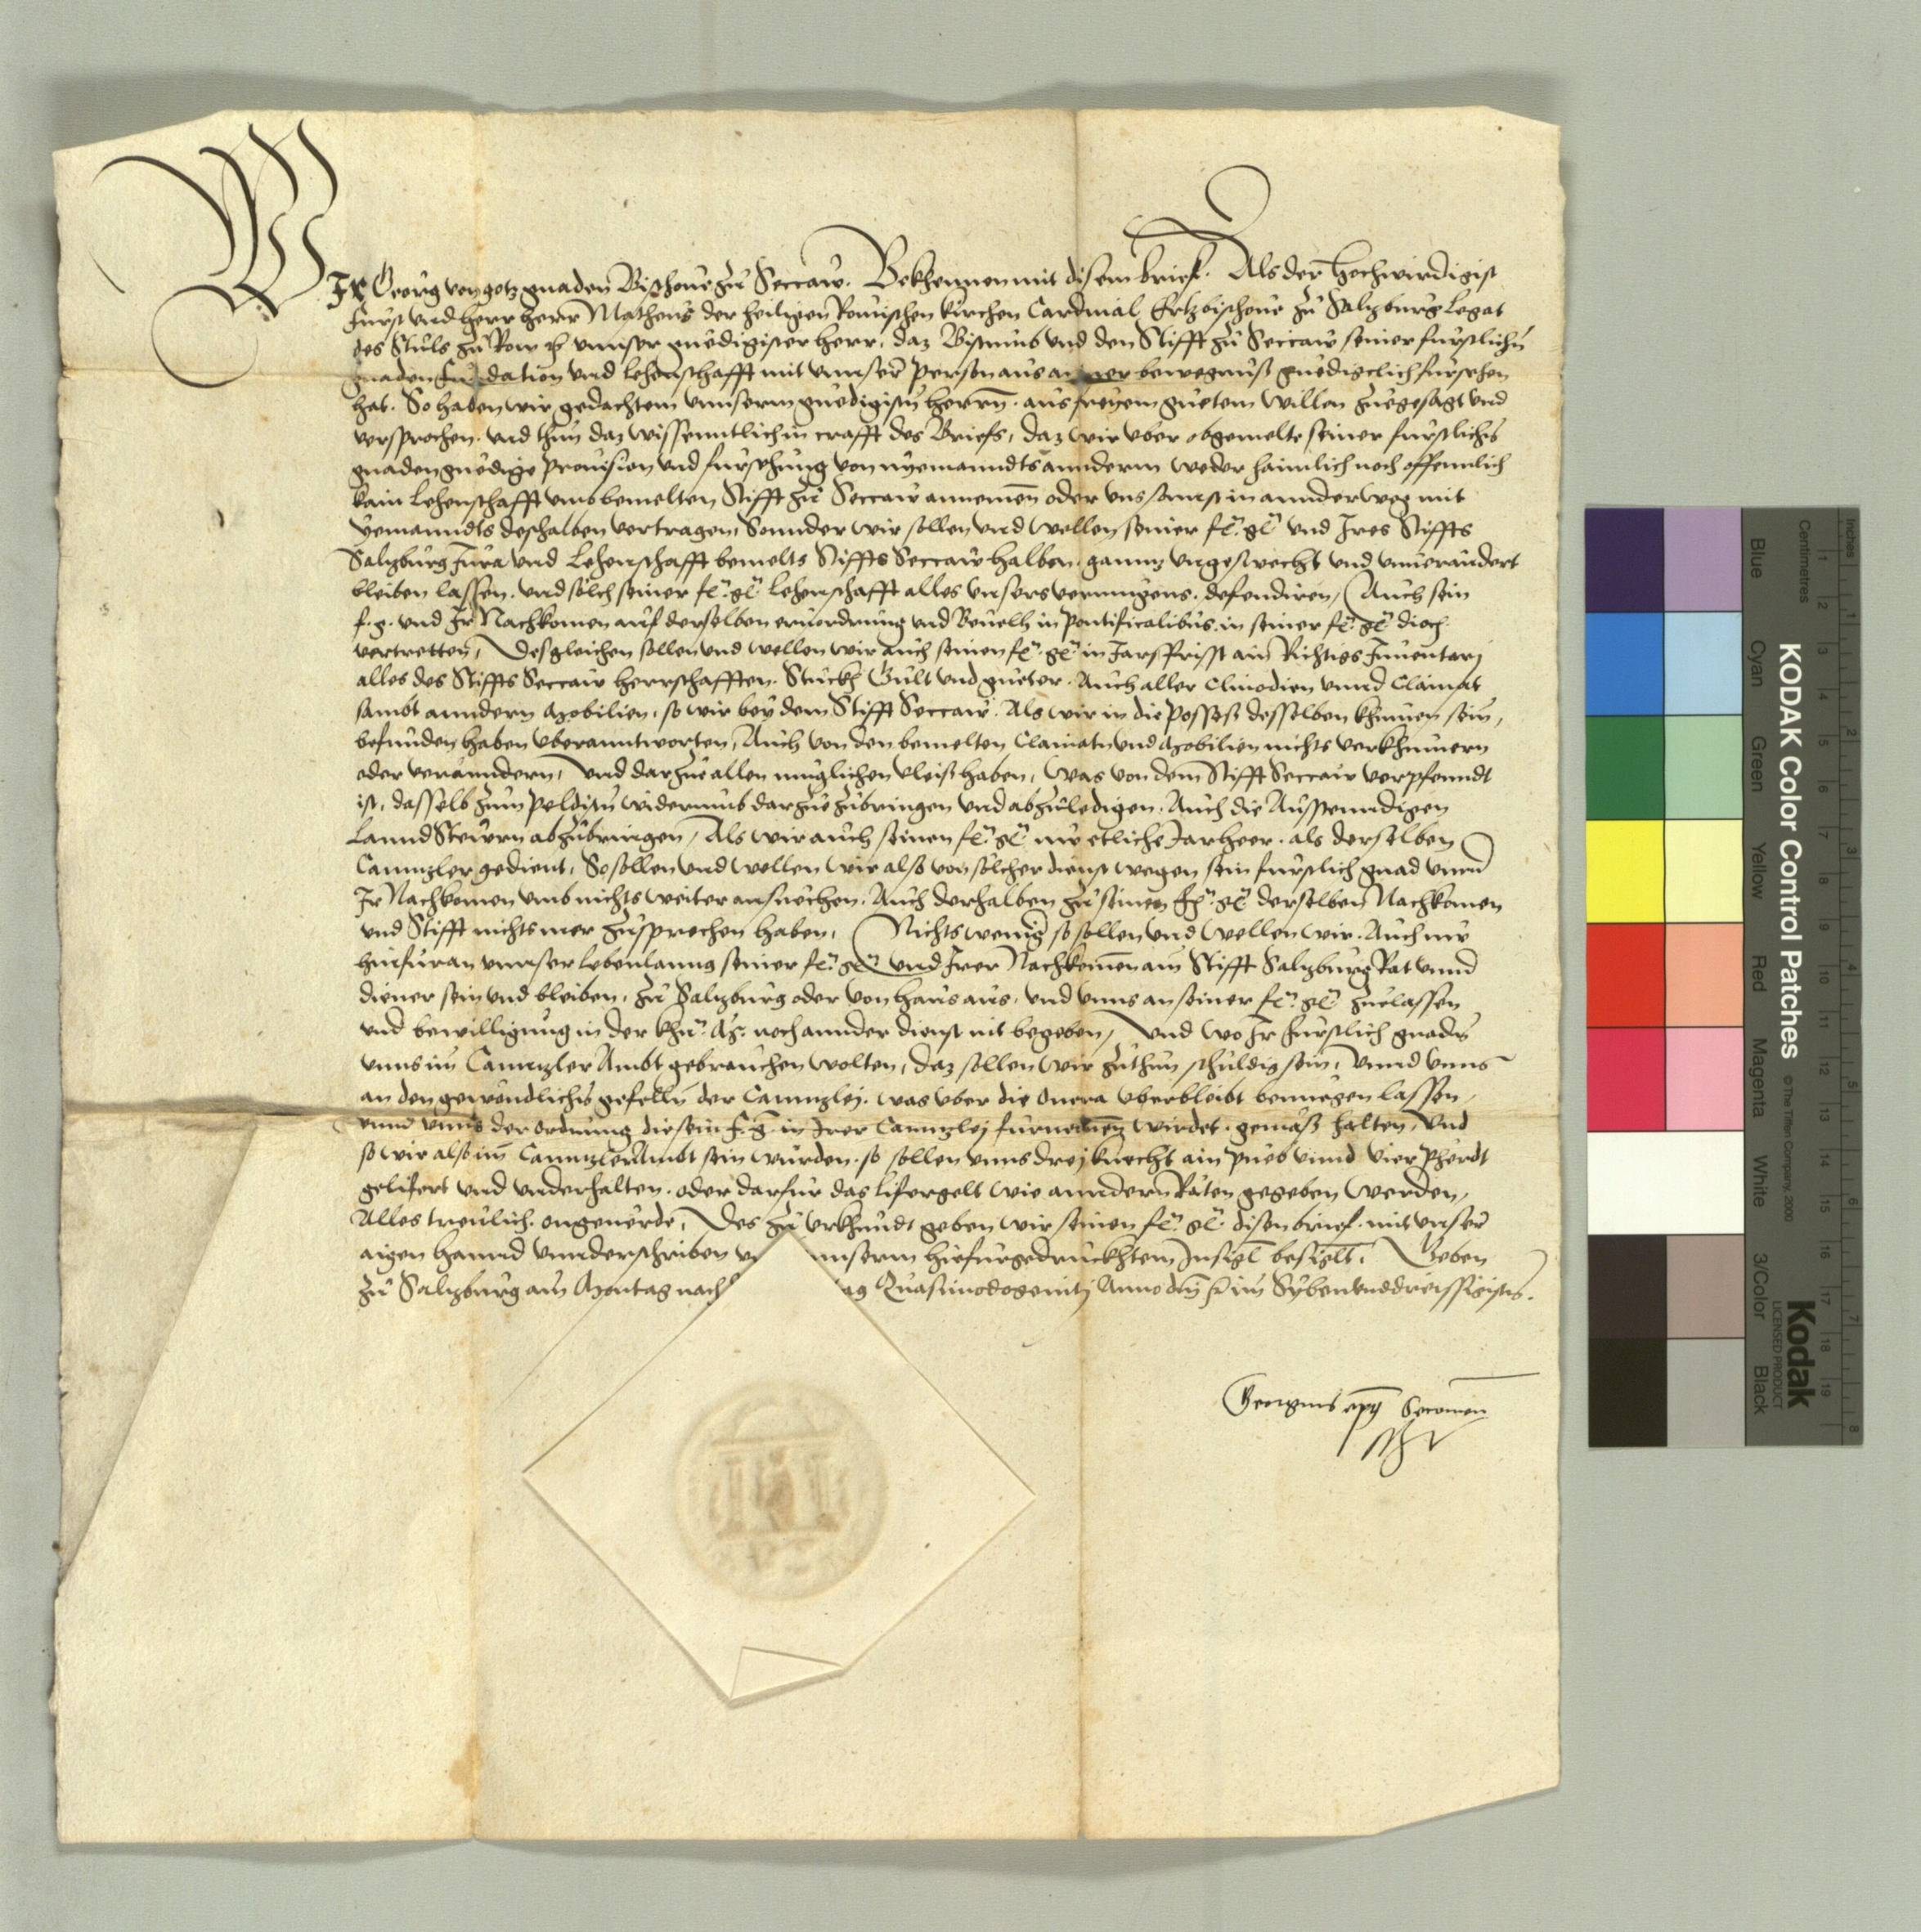 WIr Georg von gotz gnaden Bischoue zu Seccaw. Bekhennen mit disem brief. Als der hochwirdigist
furst vnd herr herr Matheus der heiligen Romischen kirchen Cardinal Ertzbischoue zu Saltzburg Legat
des Stuls zu Rom vnnser genedigister herr, daz Bistumb vnd den Stifft zu Seccaw seiner furstlichn
gnaden fundation vnd lehenschafft mit vnnser person aus aigner bewegnuß genedigclich fursehen
hat. So haben wir gedachtem vnnserm genedigistn herrn. aus freyem guetem willen zuegesagt vnd
versprochen. vnd thun daz wissenntlich in crafft des Briefs, daz wir vber obgemelte seiner furstlichn
gnaden genedige prouision vnd fursehung von nyemanndts annderm weder haimlich noch offennlich
kain Lehenschafft vmb bemelten Stifft zu Seccaw annemen oder vns sonnst in annder weg mit
yemanndts deshalben vertragen, Sonnder wir sollen vnd wellen seiner fr. gn. vnd Ires Stiffts
Saltzburg Jura vnd Lehenschafft bemelts Stiffts Seccaw halben. ganntz vngeswecht vnd vnuerandert
bleiben lassen. vnd solch seiner fr. gn. lehenschafft alles vnsers vermugens. defendiren, Auch sein
f. g. vnd Ir Nachkomen auf derselben eruordrung vnd Beuelh in pontificalibus. in seiner fr. gn. dioc.
vertretten, Desgleichen sollen vnd wellen wir auch seinen fr. gn. in Jarsfrist ain Richtigs Inuentarj
alles des Stiffts Seccaw herrschafften. Stuckh Gult vnd gueter. Auch aller Clinodien vnnd Clainat
sambt anndern Mobilien, so wir bey dem Stifft Seccaw. Als wir in die Possess desselben khumen sein,
befunden haben vberanntworten, Auch von den bemelten Clainatn vnd Mobilien nichts verkhumern
oder veranndern, vnd darzue allen muglichen vleiß haben, Was von dem Stifft Seccaw verpfenndt
ist, dasselb zum peldistn widerumb darzue zubringen vnd abzuledigen. Auch die Ausstenndigen
Lannd Steurn abzubringen, Als wir auch seinen fr. gn. nu etliche Jar heer. als derselben
Canntzler gedient, So sollen vnd wellen wir also von solcher dienst wegen sein furstlich gnad vnnd
Ir Nachkomen vmb nichts weiter ansuechen. Auch derhalben zu seinen fr. gn. derselben Nachkomen
vnd Stifft nichts mer zusprechen haben, Nichts wenig so sollen vnd wellen wir. Auch nu
hinfuran vnnser lebenlanng seiner fr. gn. vnd Irer Nachkomen am Stifft Saltzburg Rat vnnd
diener sein vnd bleiben, zu Saltzburg oder von haus aus, vnd vnns an seiner fr. gn. zuelassen
vnd bewilligung in der khu. Mt. noch annder dienst nit begeben, vnd wo Ir furstlich gnaden
vnns im Canntzler Ambt gebrauchen wolten, daz sollen wir zuthun schuldig sein, vnnd vnns
an den gewondlichn gefelln der Canntzlej. was vber die Onera vberbleibt benuegen lassen,
vnnd vnns der ordnung die sein f. g. in Irer Canntzlej furnemen wirdet. gemäß halten, vnd
so wir also im Canntzler Ambt sein wurden. so sollen vnns drej knecht ain pueb vnnd vier Pherdt
gelifert vnd vnderhalten. oder darfur das lifergelt wie anndern Räten gegeben werden,
Alles treulich. ongeuerde, Des zu vrkhundt geben wir seinen fr. gn. disen brief. mit vnser
aigen hannd vnnderschriben vnnserm hiefurgedruckhtem Insigl besiglt. Geben
zu Saltzburg am Montag nach Quasimodogenitj Anno dm im Sybenvnddreissigistn.
Georgius eps Seccovien
KODAK Color Control Patches © The Tiffen Company, 2000
Kodak
LICENSED PRODUCT
Inches
Centimetres
Blue Cyan Green Yellow Red Magenta White 3/Color Black